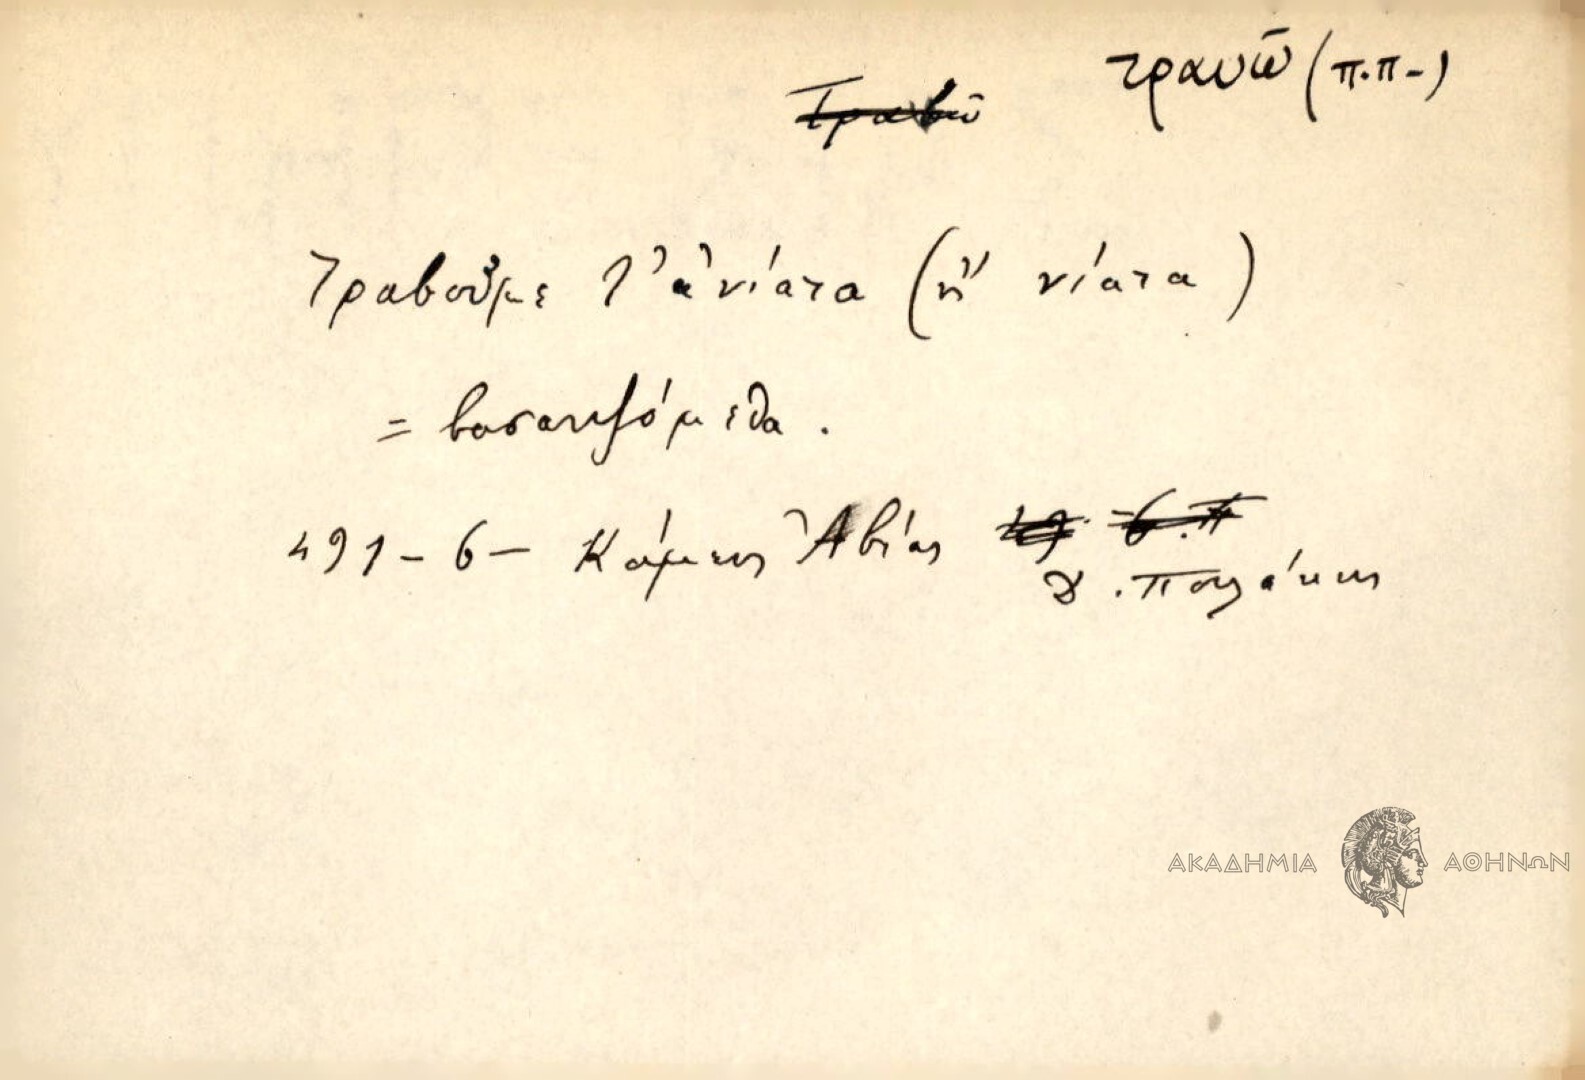 τραυῶ (π.π-)
Τραβῶ
Τραβοῦμε τ' ἀνίατα (ἢ νίατα)
= βασανιζόμεθα.
491-6- Κάμπος Ἀβίας
ΑΚΑΔΗΜΙΑ ΑΘΗΝΩΝ